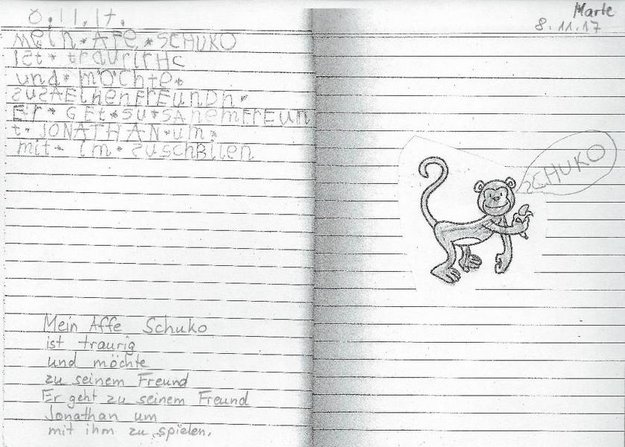 8.11.17.
mein * AFE * SCHUKO
IST * TRAURIHC
und * möchte *
ZUSAEINENFREUNDN *
Er * GET * SU * SANEMFREUN
t * JONATHAN * um *
mit * im * zuschBilen
Mein Affe Schuko
ist traurig
und möchte
zu seinem Freund
Er geht zu seinem Freund
Jonathan um
mit ihm zu spielen.
Marle
8.11.17
SCHUKO